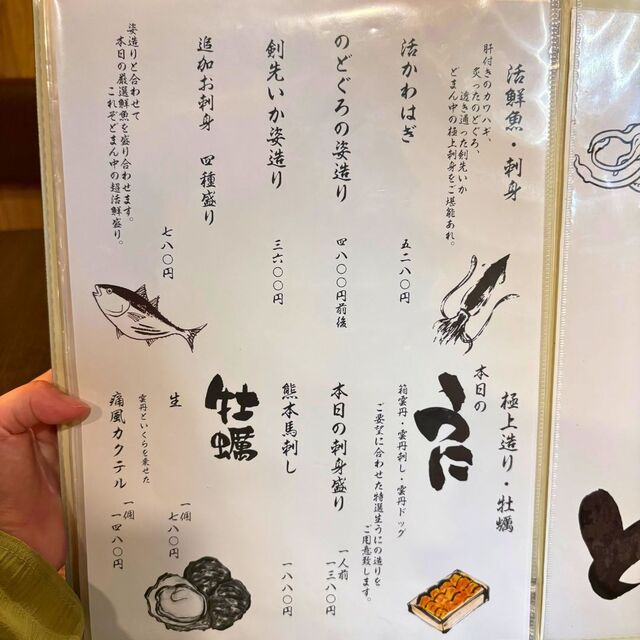 活鮮魚・刺身
肝付きのカワハギ、
炙ったのどぐろ、
透き通った剣先いか
どまん中の極上刺身をご堪能あれ。
活かわはぎ
五二八〇円
のどぐろの姿造り
四八〇〇円前後
剣先いか姿造り
三六〇〇円
追加お刺身 四種盛り
七八〇円
姿造りと合わせて
本日の厳選鮮魚を盛り合わせます。
これぞどまん中の超活鮮盛り。
極上造り・牡蠣
本日の
うに
箱雲丹・雲丹刺し・雲丹ドッグ
ご要望に合わせた特選生うにの造りを
ご用意致します。
本日の刺身盛り
一人前
一三八〇円
熊本馬刺し
一八八〇円
牡蠣
生
一個
七八〇円
雲丹といくらを乗せた
痛風カクテル
一個
一四八〇円